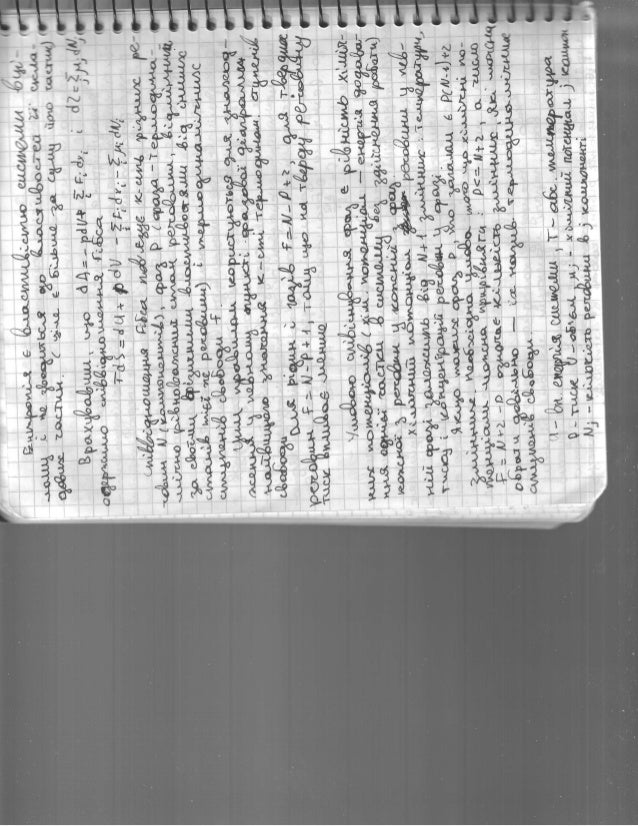 Ентропія є властивістю системи вці-
лому і не зводиться до властивостей її скла-
дових частин. (ціле є більше за суму його частин)
Врахувавши, що dA = pdV + ∑ Fᵢ drᵢ ; dZ = ∑ μⱼ dNⱼ
одержимо співвідношення Гібса
TdS = dU + pdV - ∑ Fᵢ drᵢ - ∑ μⱼ dNⱼ
Співвідношення Гібса пов'язує к-сть різних ре-
човин N (компонентів), фаз P (фаза - термодина-
мічно рівноважний стан речовини, відмінний
за своїми фізичними властивостями від інших
станів тої же речовини) і термодинамічних
ступенів свободи F.
Цим правилом користуються для знаход-
ження у певному пункті фазової діаграми
найвищого значення к-сті термодинам. ступенів
свободи
Для рідин і газів F = N - P + 2, для твердих
речовин F = N - P + 1, тому що на тверду речовину
тиск впливає менше
Умовою співіснування фаз є рівність хіміч-
них потенціалів (хім. потенціал - енергія додава-
ння одної частки в систему без здійснення роботи)
кожної з речовин у кожній з фаз.
Хімічний потенціал речовини у пев-
ній фазі залежить від N+1 змінних: температури,
тиску і концентрації речовин у фазі.
Якщо таких фаз P, то загалом є P(N-1)+2
змінних. Необхідна умова того що хімічні по-
тенціали можна прирівняти: P<=N+2, а число
F = N+2-P означає кількість змінних, які можемо
обрати довільно - їх назив. термодинамічних
ступенів свободи.
U - вн. енергія системи, T - абс. температура
p - тиск V - об'єм μⱼ - хімічний потенціал j компон
Nⱼ - кількість речовини в j компоненті